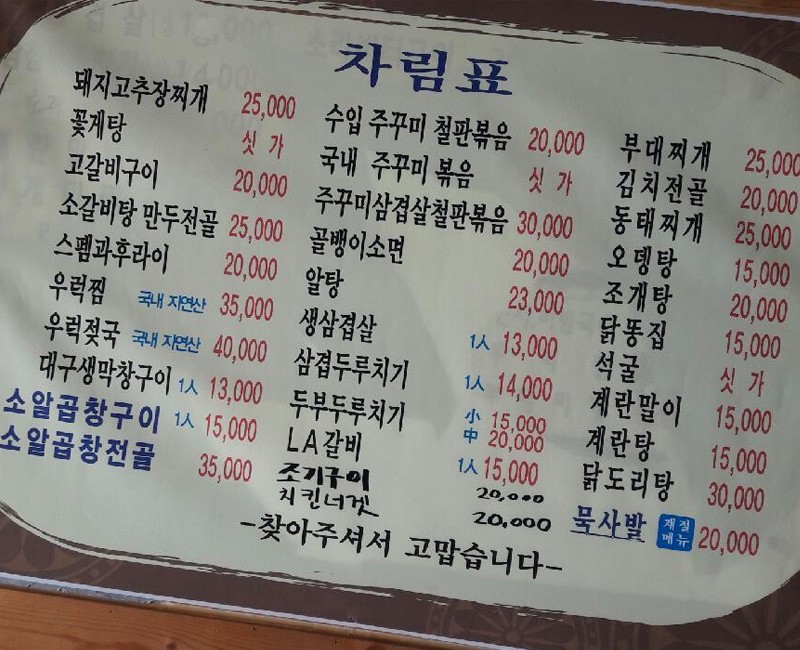 차림표
돼지고추장찌개 25,000
꽃게탕 싯가
고갈비구이 20,000
소갈비탕 만두전골 25,000
스팸과후라이 20,000
우럭찜 국내 자연산 35,000
우럭젖국 국내 자연산 40,000
대구생막창구이 1人 13,000
소알곱창구이 1人 15,000
소알곱창전골 35,000
수입 주꾸미 철판볶음 20,000
국내 주꾸미 볶음 싯가
주꾸미삼겹살철판볶음 30,000
골뱅이소면 20,000
알탕 23,000
생삼겹살 1人 13,000
삼겹두루치기 1人 14,000
두부두루치기 小 15,000
中 20,000
LA갈비 1人 15,000
조기구이 20,000
치킨너겟 20,000
부대찌개 25,000
김치전골 20,000
동태찌개 25,000
오뎅탕 15,000
조개탕 20,000
닭똥집 15,000
석굴 싯가
계란말이 15,000
계란탕 15,000
닭도리탕 30,000
묵사발 계절 메뉴 20,000
-찾아주셔서 고맙습니다-